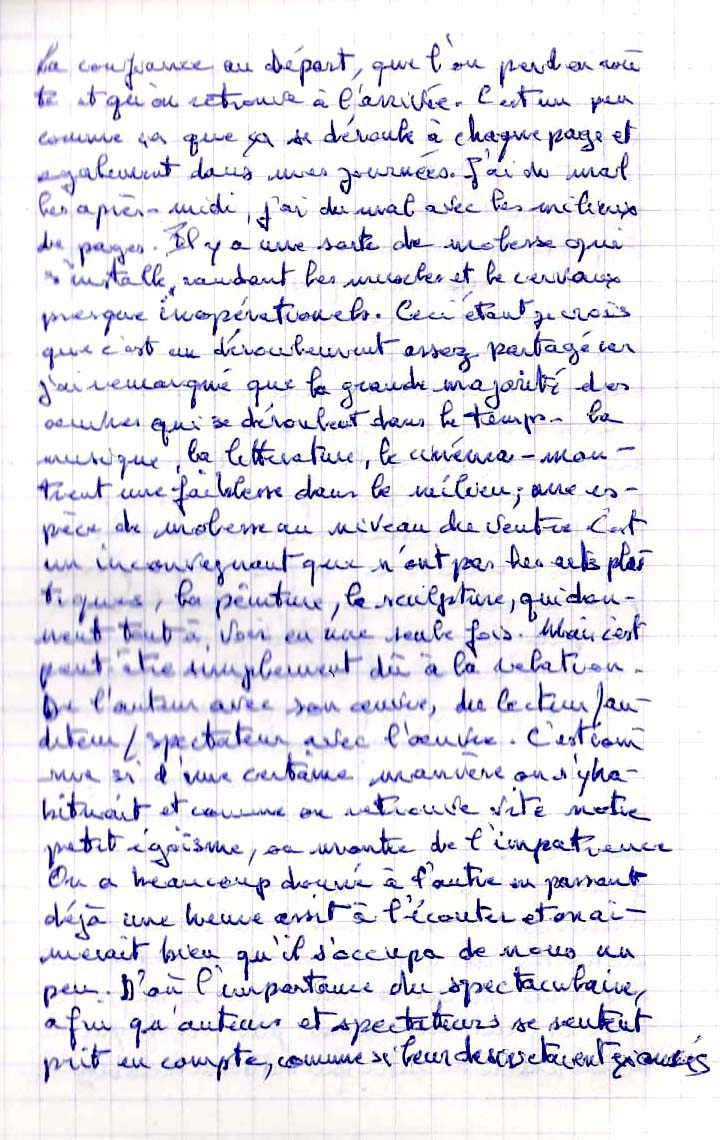 La confiance au départ, que l'on perd en rou
te et qu'on retrouve à l'arrivée. C'est un peu
comme ça que ça se déroule à chaque page et
également dans mes journées. J'ai du mal
les après-midi, j'ai du mal avec les milieux
de pages. Il y a une sorte de molesse qui
s'installe, rendant les muscles et le cerveaux
presque inopérationels. Ceci étant je crois
que c'est un déroulement assez partagé car
j'ai remarqué que la grande majorité des
oeuvres qui se déroulent dans le temps - la
musique, la littérature, le cinéma - mon-
trent une faiblesse dans le milieu; une es-
pèce de molesse au niveau du ventre. C'est
un inconvegnant que n'ont pas les arts plas
tiques, la peinture, la sculpture, qui don-
nent tout à voir en une seule fois. Mais c'est
peut-être simplement dû à la relation
De l'auteur avec son oeuvre, du lecteur/au-
diteur/spectateur avec l'oeuvre. C'est com
me si d'une certaine manière on s'y ha-
bituait et comme on retrouve vite notre
petit égoïsme, on montre de l'impatience
On a beaucoup donné à l'autre en passant
déjà une heure assit à l'écouter et on ai-
merait bien qu'il s'occupa de nous un
peu. D'où l'importance du spectaculaire,
afin qu'auteurs et spectateurs se sentent
prit en compte, comme si leur desirs étaient exaucés